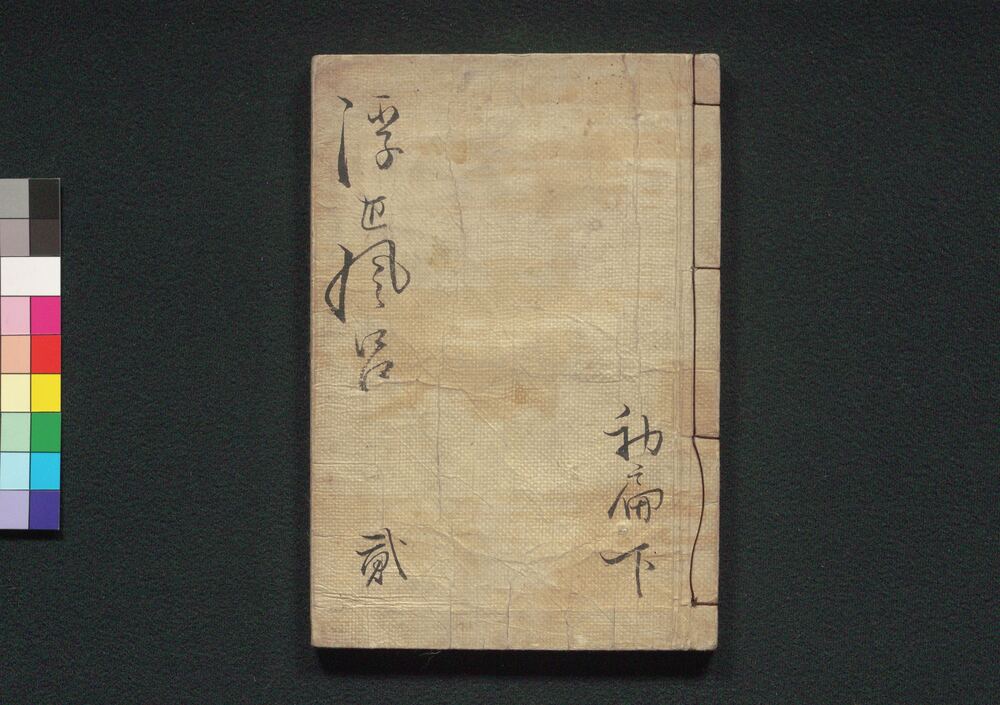 初篇下
浮世風呂 貳